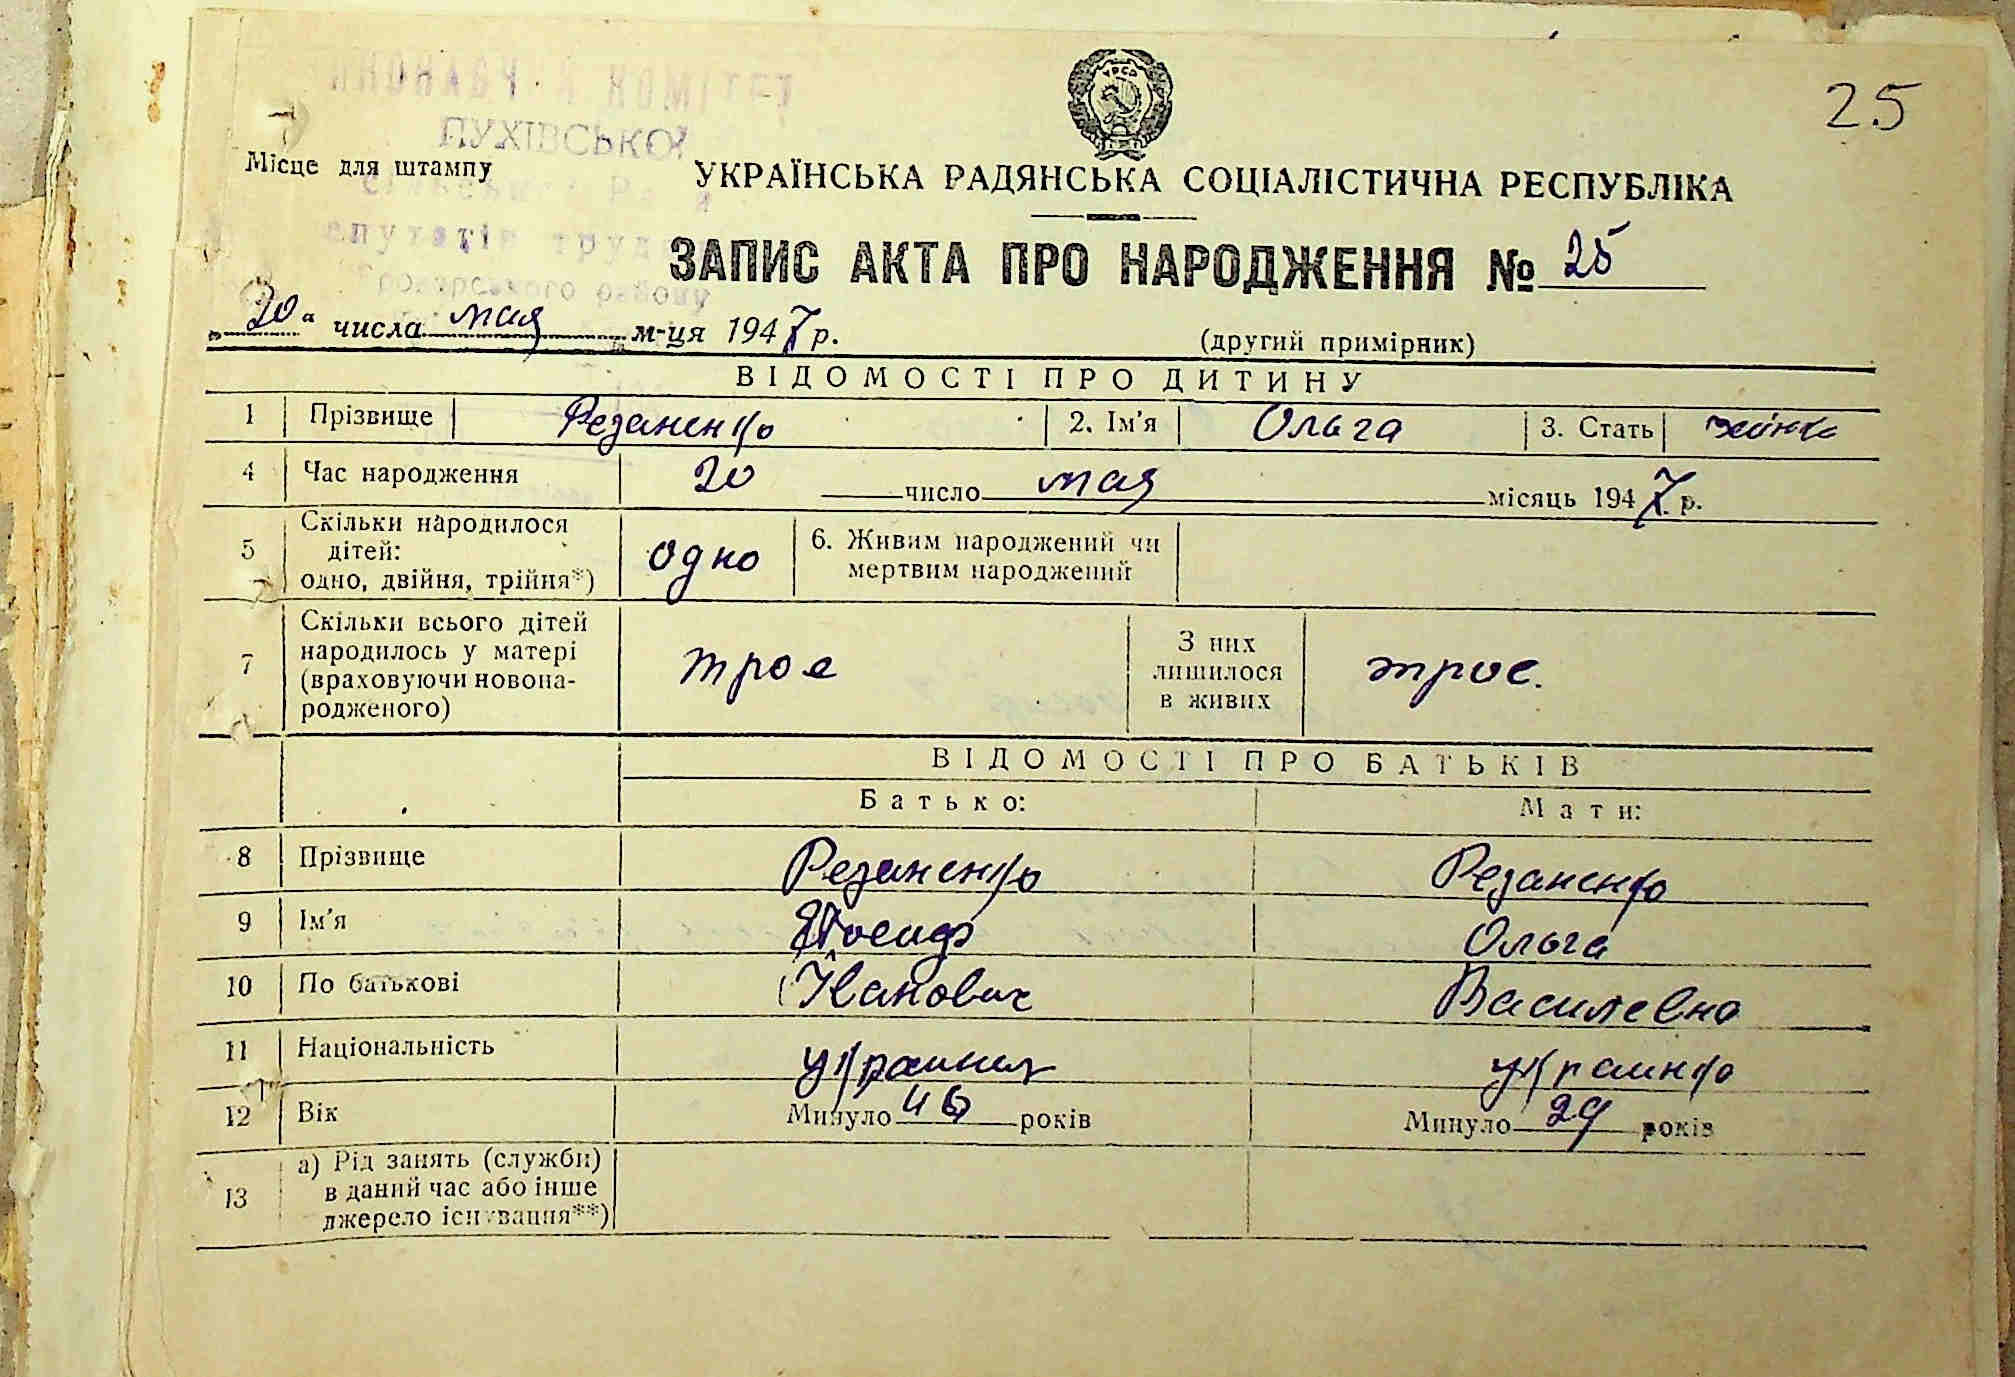 25
КОМІТЕТ
ПУХІВСЬКОЇ
Місце для штампу
УКРАЇНСЬКА РАДЯНСЬКА СОЦІАЛІСТИЧНА РЕСПУБЛІКА
ЗАПИС АКТА ПРО НАРОДЖЕННЯ № 25
району
„20“ числа мая м-ця 1947 р. (другий примірник)
ВІДОМОСТІ ПРО ДИТИНУ
1 Прізвище Резаненко 2. Ім'я Ольга 3. Стать
4 Час народження 20 число мая місяць 1947 р.
5 Скільки народилося дітей: одно, двійня, трійня*) одно 6. Живим народжений чи мертвим народжений
7 Скільки всього дітей народилось у матері (враховуючи новонародженого) трое З них лишилося в живих трое.
ВІДОМОСТІ ПРО БАТЬКІВ
Батько: Мати:
8 Прізвище Резаненко Резаненко
9 Ім'я Иосиф Ольга
10 По батькові Иванович Василевна
11 Національність украинец украинка
12 Вік Минуло 46 років Минуло 29 років
13 а) Рід занять (служби) в даний час або інше джерело існування**)